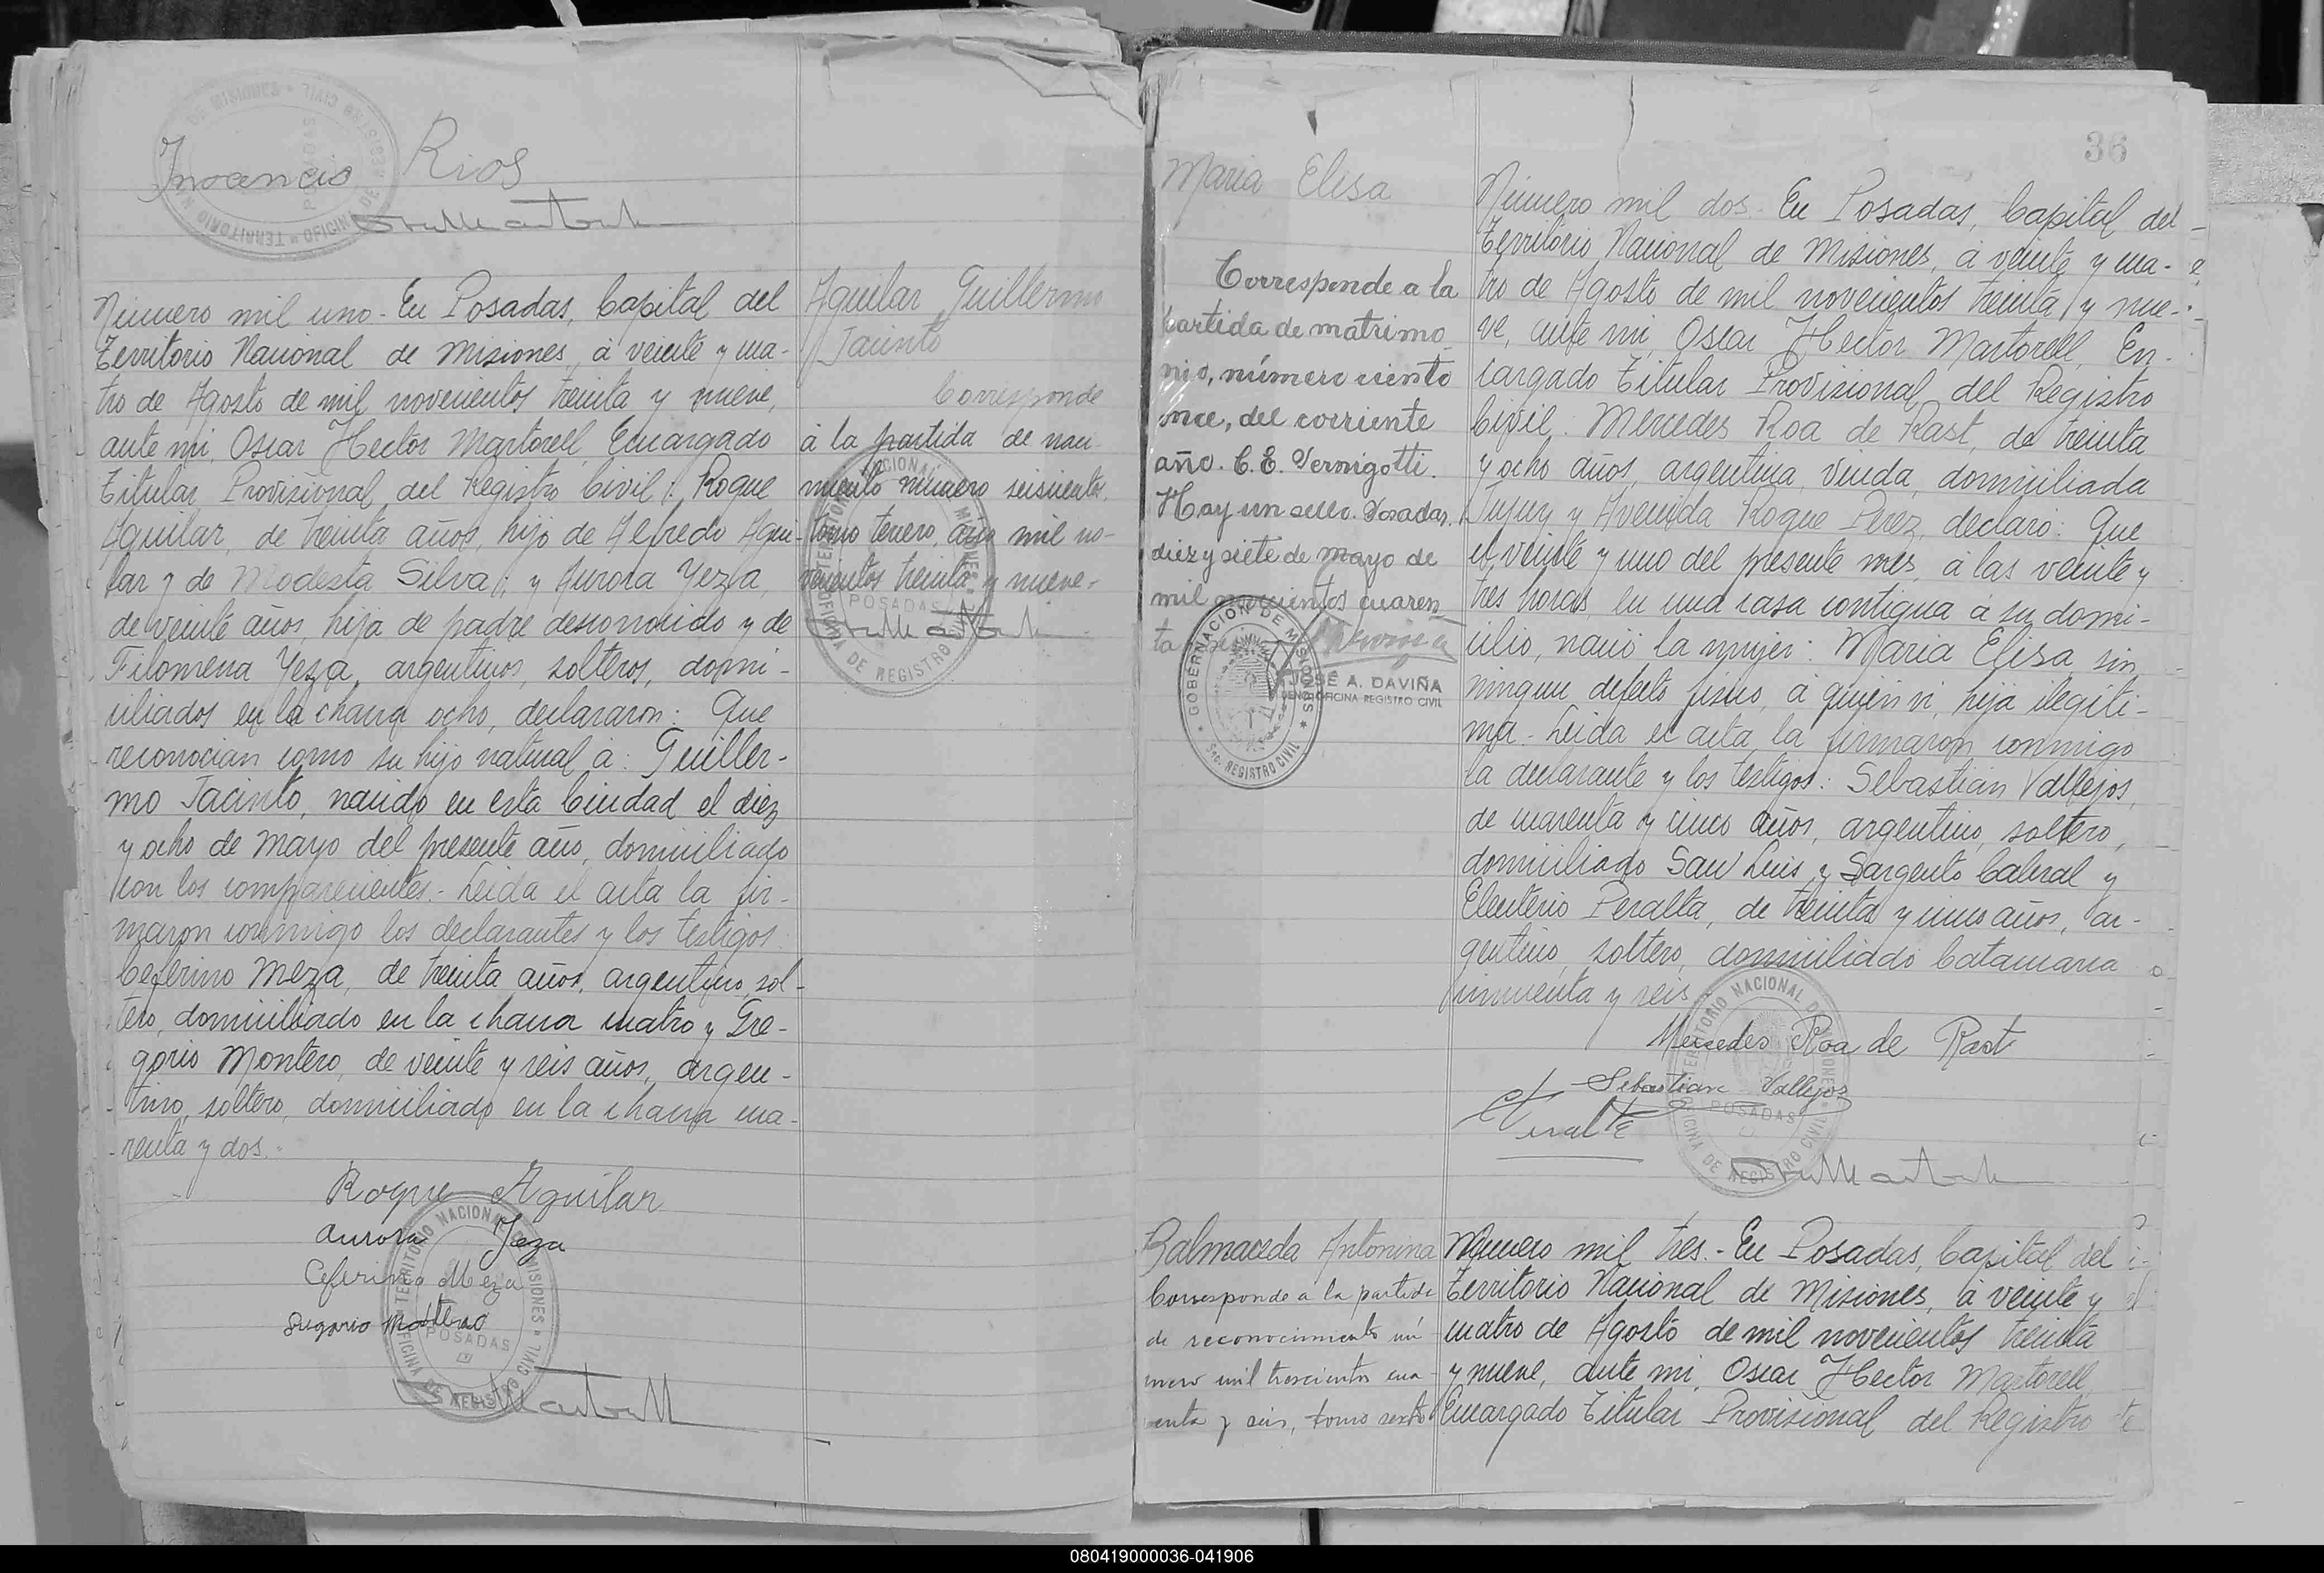 Inocencio Rios
Número mil uno.- En Posadas, Capital del
Territorio Nacional de Misiones, á veinte y cua-
tro de Agosto de mil novecientos treinta y nueve,
ante mi, Oscar Hector Martorell, Encargado
Titular Provisional del Registro Civil: Roque
Aguilar, de treinta años, hijo de Alfredo Agui-
lar y de Modesta Silva; y Aurora Yeza,
de veinte años, hija de padre desconocido y de
Filomena Yeza, argentinos, solteros, domi-
ciliados en la chacra ocho, declararon: Que
reconocian como su hijo natural á: Guiller-
mo Jacinto, nacido en esta Ciudad el diez
y ocho de Mayo del presente año, domiciliado
con los comparecientes.- Leida el acta la fir-
maron conmigo los declarantes y los testigos:
Ceferino Meza, de treinta años, argentino, sol-
tero, domiciliado en la chacra cuatro y Gre-
gorio Montero, de veinte y seis años, argen-
tino, soltero, domiciliado en la chacra cua-
renta y dos.-
Roque Aguilar
Aurora Yeza
Ceferino Meza
TERRITORIO NACIONAL DE MISIONES
POSADAS
OFICINA DE REGISTRO CIVIL
Aguilar Guillermo
Jacinto
Corresponde
á la partida de naci-
miento número seiscientos,
tomo tercero, año mil no-
vecientos treinta y nueve.-
TERRITORIO NACIONAL DE MISIONES
POSADAS
OFICINA DE REGISTRO CIVIL
36
Maria Elisa
Corresponde a la
partida de matrimo-
nio, número ciento
once, del corriente
año. C. E. Vernigotti.
Hay un sello. Posadas,
diez y siete de mayo de
mil novecientos cuaren
GOBERNACIÓN DE MISIONES
Sec. REGISTRO CIVIL
JOSÉ A. DAVIÑA
OFICINA REGISTRO CIVIL
Número mil dos. En Posadas, Capital del
Territorio Nacional de Misiones, á veinte y cua-
tro de Agosto de mil novecientos treinta y nue-
ve, ante mi, Oscar Hector Martorell, En-
cargado Titular Provisional del Registro
Civil: Mercedes Roa de Rast, de treinta
y ocho años, argentina, viuda, domiciliada
Jujuy y Avenida Roque Perez, declaró: Que
el veinte y uno del presente mes, á las veinte y
tres horas, en una casa contigua á su domi-
cilio, nació la mujer: Maria Elisa, sin
ningun defecto fisico, á quien vi, hija ilegiti-
ma.- Leida el acta, la firmaron conmigo
la declarante y los testigos: Sebastián Vallejos,
de cuarenta y cinco años, argentino, soltero,
domiciliado San Luis y Sargento Cabral y
Eleuterio Peralta, de treinta y cinco años, ar-
gentino, soltero, domiciliado Catamarca
cincuenta y seis
Mercedes Roa de Rast
Sebastian Vallejos
TERRITORIO NACIONAL DE MISIONES
POSADAS
OFICINA DE REGISTRO CIVIL
Balmaceda Antonina
Corresponde a la partida
de reconocimiento nú
mero mil trescientos cua-
renta y seis, tomo sexto
Número mil tres.- En Posadas, Capital del
Territorio Nacional de Misiones, á veinte y
cuatro de Agosto de mil novecientos treinta
y nueve, ante mi, Oscar Hector Martorell,
Encargado Titular Provisional del Registro
080419000036-041906